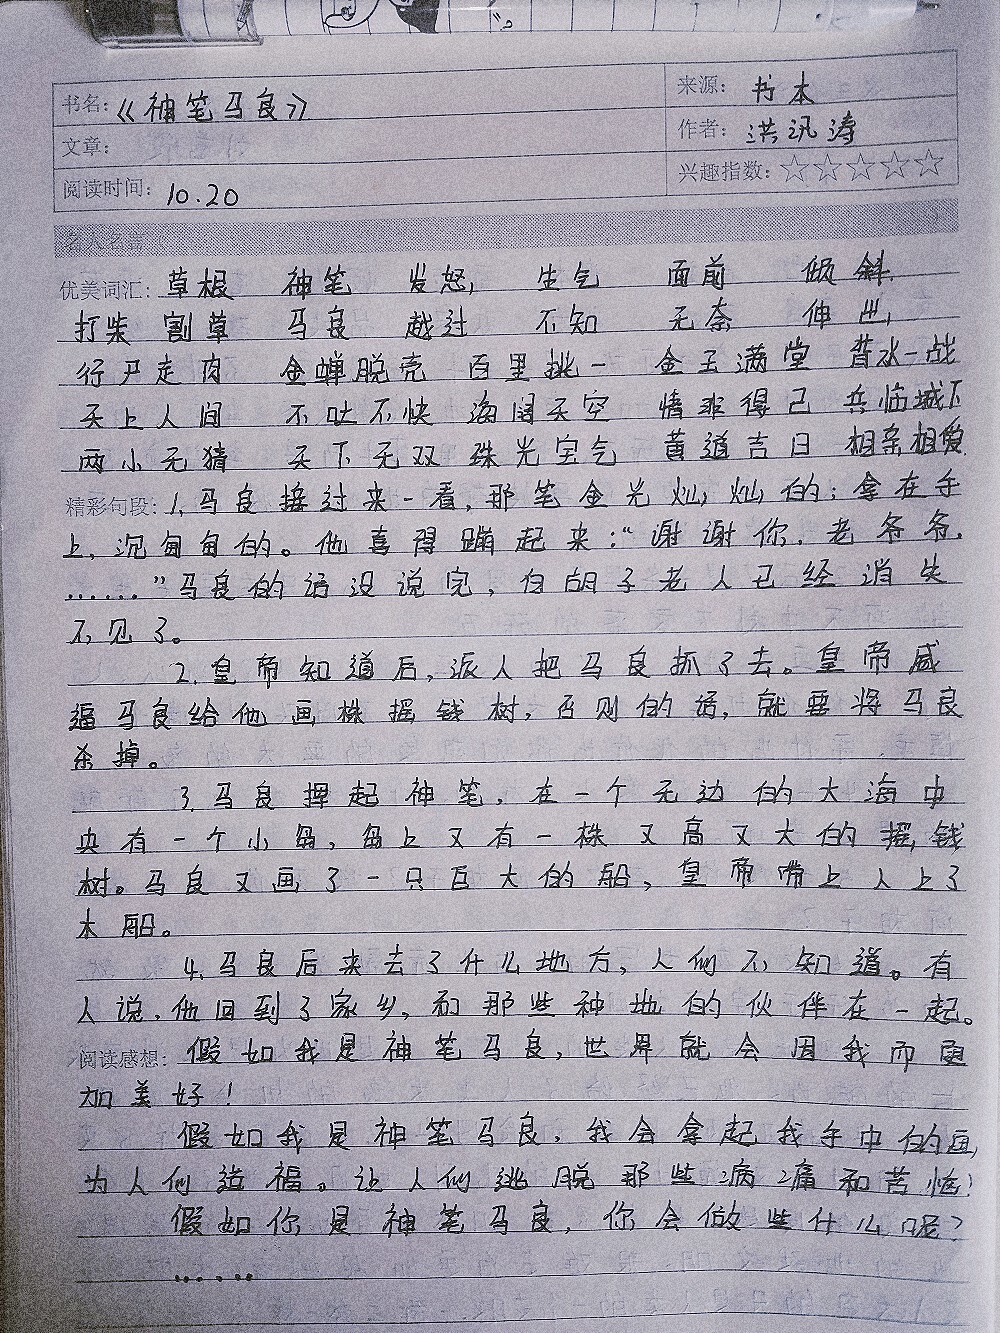 书名：《神笔马良》
来源：书本
文章：
作者：洪汛涛
阅读时间：10.20
兴趣指数：☆☆☆☆☆
优美词汇：草根 神笔 发怒 生气 面前 倾斜
打柴 割草 马良 越过 不知 无奈 伸出
行尸走肉 金蝉脱壳 百里挑一 金玉满堂 背水一战
天上人间 不吐不快 海阔天空 情非得已 兵临城下
两小无猜 天下无双 珠光宝气 黄道吉日 相亲相爱
精彩句段：1、马良接过来一看，那笔金光灿灿的；拿在手
上，沉甸甸的。他喜得蹦起来：“谢谢你，老爷爷，
……”马良的话没说完，白胡子老人已经消失
不见了。
2、皇帝知道后，派人把马良抓了去。皇帝威
逼马良给他画株摇钱树，否则的话，就要将马良
杀掉。
3、马良提起神笔，在一个无边的大海中
央有一个小岛，岛上又有一株又高又大的摇钱
树。马良又画了一只巨大的船，皇帝带上人上了
木船。
4、马良后来去了什么地方，人们不知道。有
人说，他回到了家乡，和那些种地的伙伴在一起。
阅读感想：假如我是神笔马良，世界就会因我而更
加美好！
假如我是神笔马良，我会拿起我手中的画，
为人们造福。让人们逃脱那些病痛和苦恼！
假如你是神笔马良，你会做些什么呢？
……